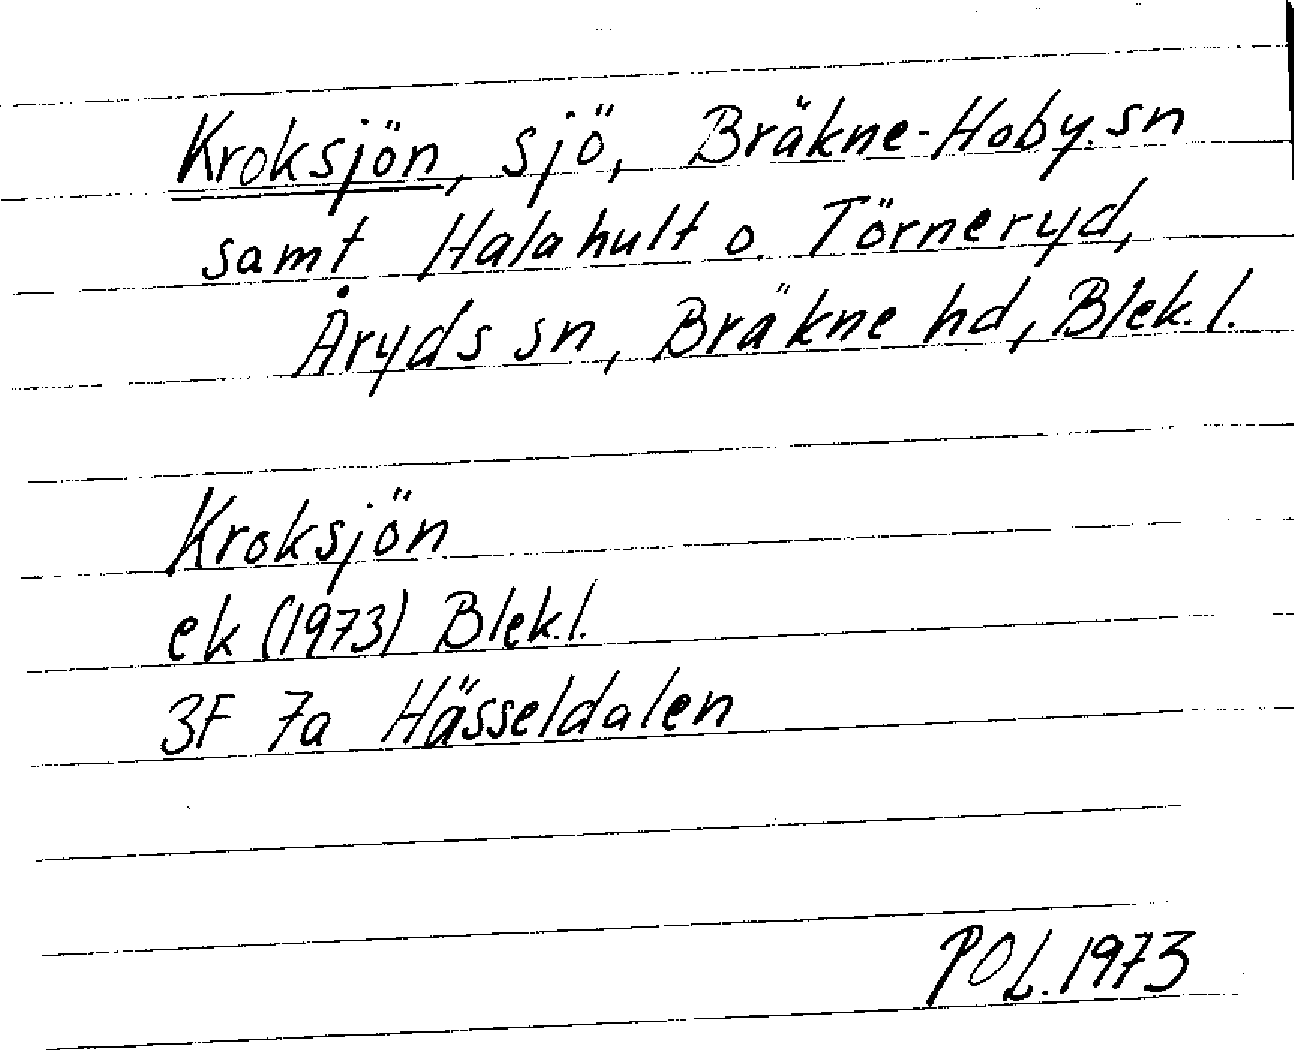 Kroksjön, sjö, Bräkne-Hoby. sn
samt Halahult o. Törneryd,
Åryds sn, Bräkne hd, Blek. l.
Kroksjön
ek (1973) Blek. l.
3F 7a Hässeldalen
POL. 1973